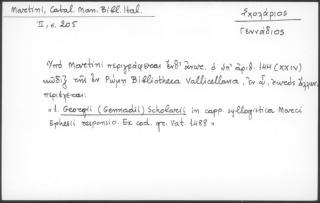 Martini, Catal. Man. Bibl. Ital.
II, σ. 205
Σχολάριος
Γεννάδιος
Ὑπὸ Martini περιγράφεται ἔνθ' ἀνωτ. ὁ ὑπ' ἀριθ. 144 (XXIV)
κῶδιξ τῆς ἐν Ρώμῃ Bibliotheca Vallicellana, ἐν ᾧ,
περιέχεται:
"1. Georgii (Gennadii) Scholarii in capp. syllogistica Marci
Ephesii responsio. Ex cod. gr. Vat. 1488"